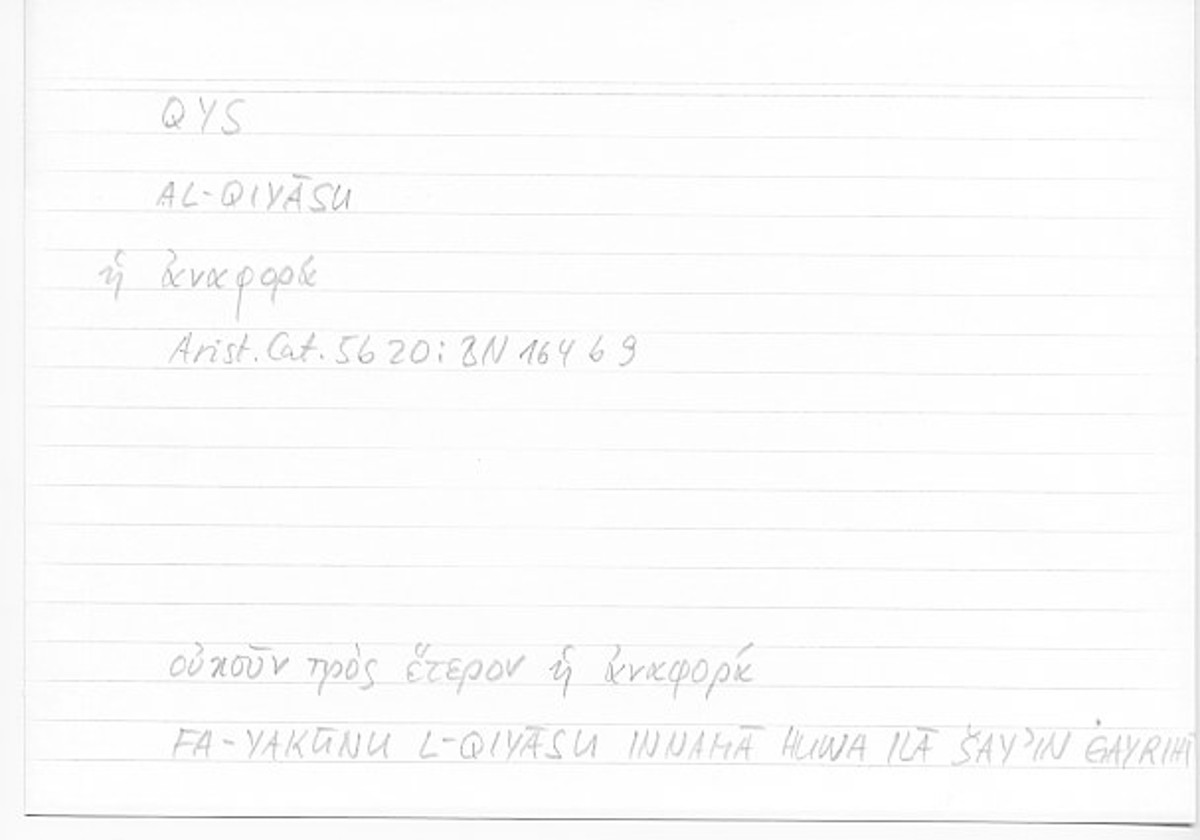 QYS
AL-QIYĀSU
ἡ ἀναφορά
Arist. Cat. 5b 20; BN 164 b 9
οὐκοῦν πρὸς ἕτερον ἡ ἀναφορά
FA-YAKŪNU L-QIYĀSU INNAMĀ HUWA ILĀ ŠAYʾIN ĠAYRIHĪ